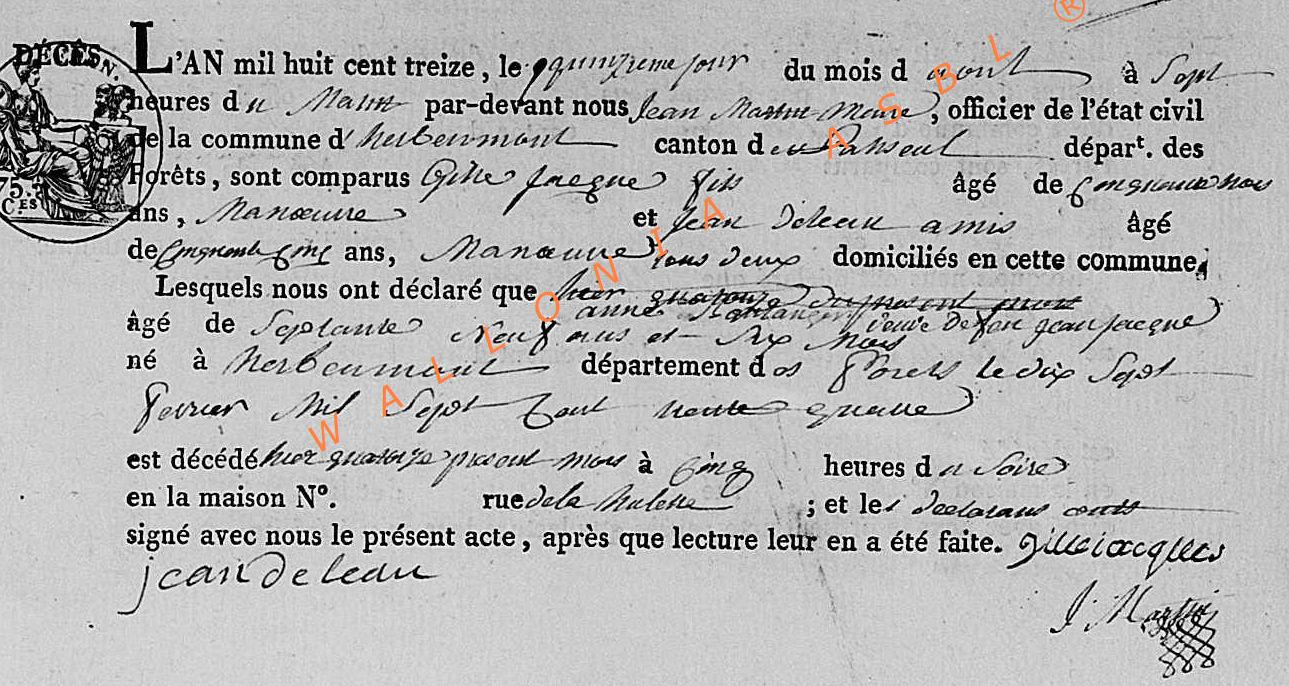 DÉCÈS
L'AN mil huit cent treize, le quinzieme jour du mois d aout à Sept
heures du Matin par-devant nous Jean Martin Maire, officier de l'état civil
de la commune d'herbeumont canton de Paliseul départ. des
Forêts, sont comparus Gille Jacque fils âgé de Cinquante trois
ans, Manœuvre et Jean Deleau amis âgé
de Cinquante Cinq ans, Manœuvre tous deux domiciliés en cette commune,
Lesquels nous ont déclaré que hier quatorze du present mois
anne veuve de feu Jean Jacque
âgé de Septante Neuf ans et Six Mois
né à herbeumont département des Forets le dix Sept
fevrier Mil Sept Cent trente quatre
est décédé hier quatorze present mois à Cinq heures du Soire
en la maison N°. rue de la ; et les declarans onts
signé avec nous le présent acte, après que lecture leur en a été faite. gille iacques
jean de leau
J Martin
75.
C.ES
WALLONIA ASBL ®